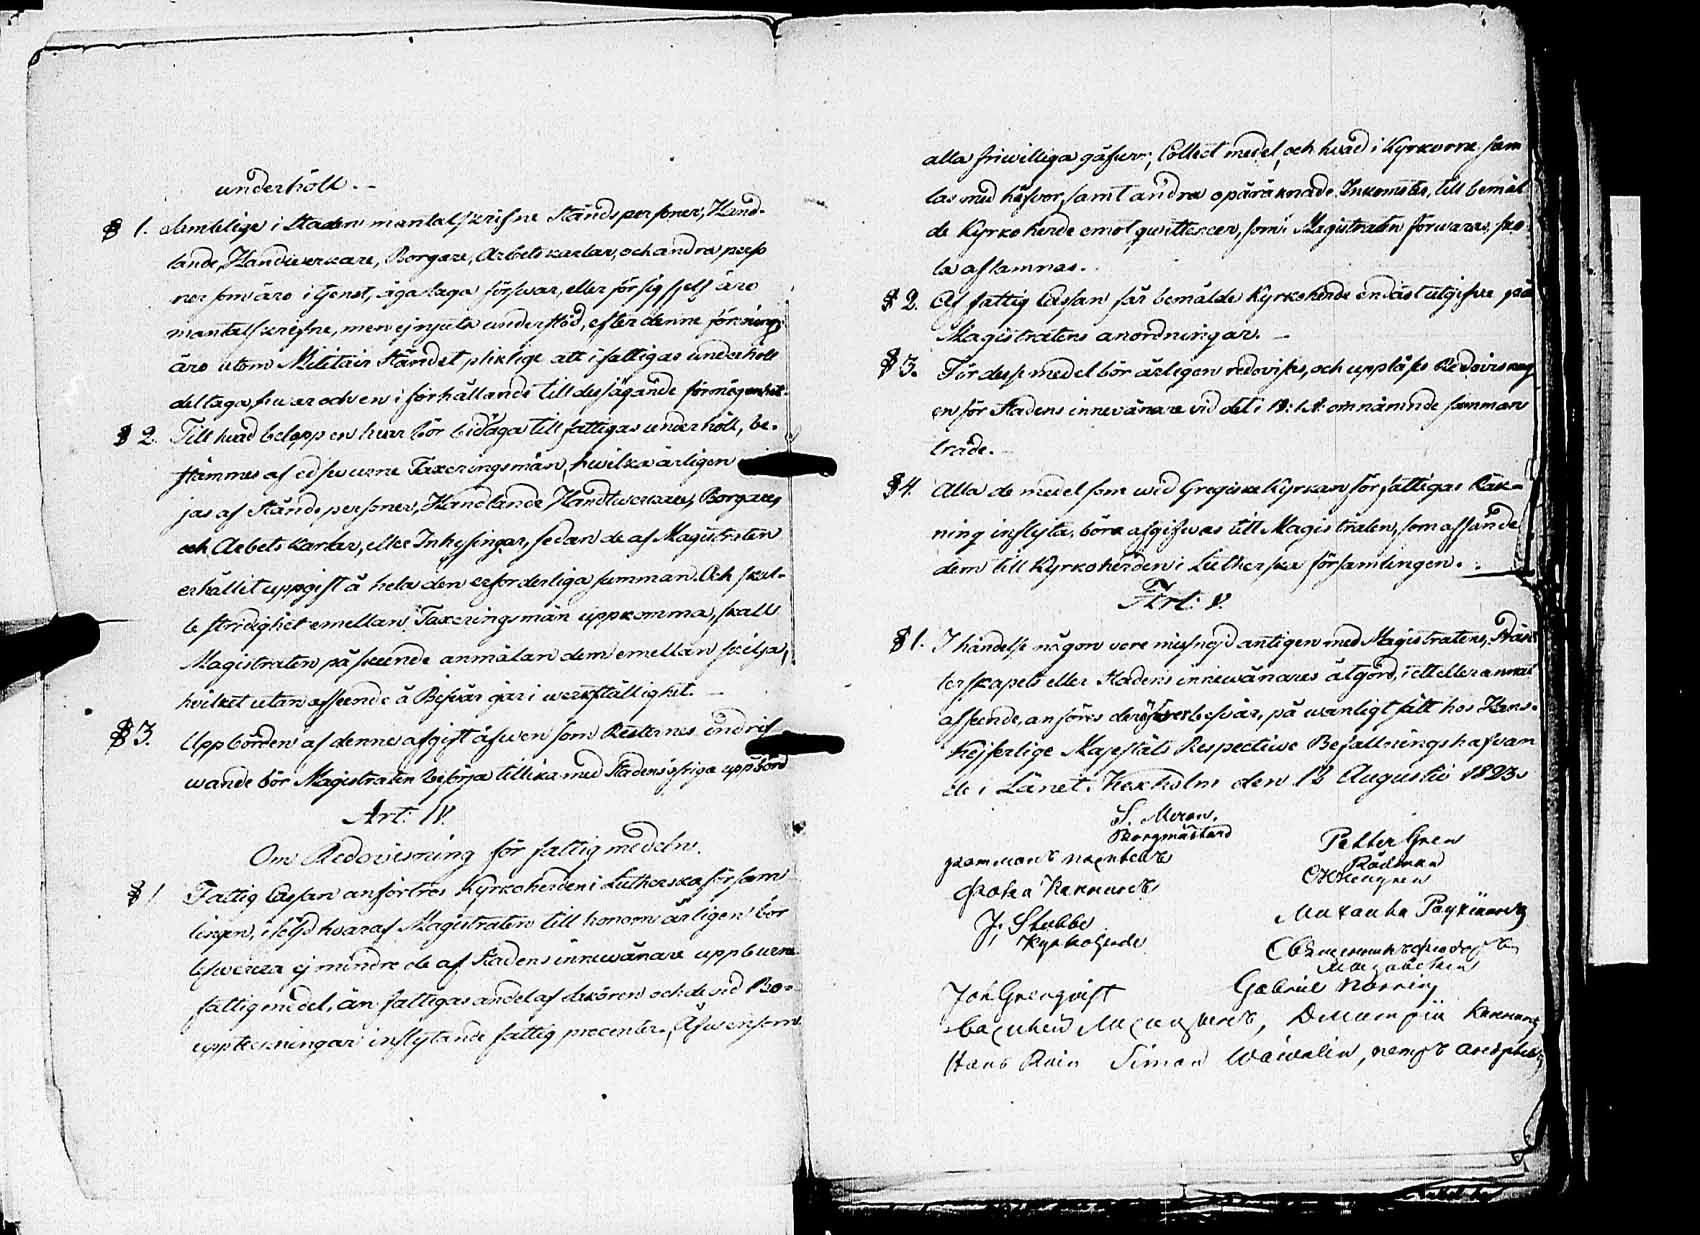 underhåll.
§ 1. Samtelige i Staden mantalsskrifne Stånds personer, Hand-
lande, Handtverkare, Borgare, Arbetskarlar, och andra perso
ner som äro i tjenst, äga laga försvar, eller för sig sjelf äro
mantalsskrifne, men ej njuta understöd, efter denne förening,
äro utom Militair Ståndet pliktige att i fattigas underhåll
deltaga, hwar och en i förhållande till dess ägande förmögenhet.
§ 2. Till hvad belopp en hvar bör bidraga till fattigas underhåll, be-
stämmes af edsvurne Taxeringsmän, hvilka årligen
jas af Stånds personer, Handlande Handtverkare, Borgare,
och Arbets karlar, eller Inhysingar, sedan de af Magistraten
erhållit uppgift å hela den erforderliga summan. Och skul-
le stridighet emellan Taxeringsmän uppkomma, skall
Magistraten på skeende anmälan dem emellan skilja,
hvilket utan afseende å Besvär går i werkställighet.
§ 3. Uppbörden af denne afgift äfwen som Resternes indrif
wande bör Magistraten besörja tillika med Stadens öfriga uppbörd
Art: IV.
Om Redovisning för fattig medeln.
§ 1 Fattig Cassan anförtros Kyrkoherden i Lutherska försam
lingen, i följd hvaraf Magistraten till honom årligen bör
leverera ej mindre de af Stadens innevånare uppburne
fattig medel, än fattigas andel af sakören och de vid Bo-
uppteckningar inflytande fattig procenter, Äfwensom
alla friwilliga gåfwor, Collect medel, och hvad i Kyrkorne sam
las med håfvor, samt andra opåräknade Inkomster, till bemäl
de Kyrkoherde emot qwittencer, som i Magistraten förwaras, sko
la aflämnas.
§ 2. Af fattig Cassan får bemälde Kyrkoherde endast utgifva på
Magistratens anordningar.
§ 3. För desse medel bör årligen redovisas, och uppläses Redovisning
en för Stadens innevånare vid det i omnämnde samman
träde.
§ 4. Alla de medel som wid Gregiska Kyrkan för fattigas Räk-
ning inflyta, böra afgifwas till Magistraten, som afsände
dem till Kyrkoherden i Lutherska församlingen.
Art: V.
§ 1. I händelse någon vore missnöjd antigen med Magistratens, Präs
terskapets eller Stadens innewånares åtgörd, i ett eller annat
afseende, anföres deröfwer besvär, på wanligt sätt hos Hans
Kejserlige Majestäts Respective Befallningshafvan
de i Länet. Kexholm den 13 Augusti 1823.
S. Meron,
Borgmästare
Petter Gren
Rådman
J. Stubbe
Kyrkoherde
Joh Grenqvist
Gabriel
Hans Rain Simon